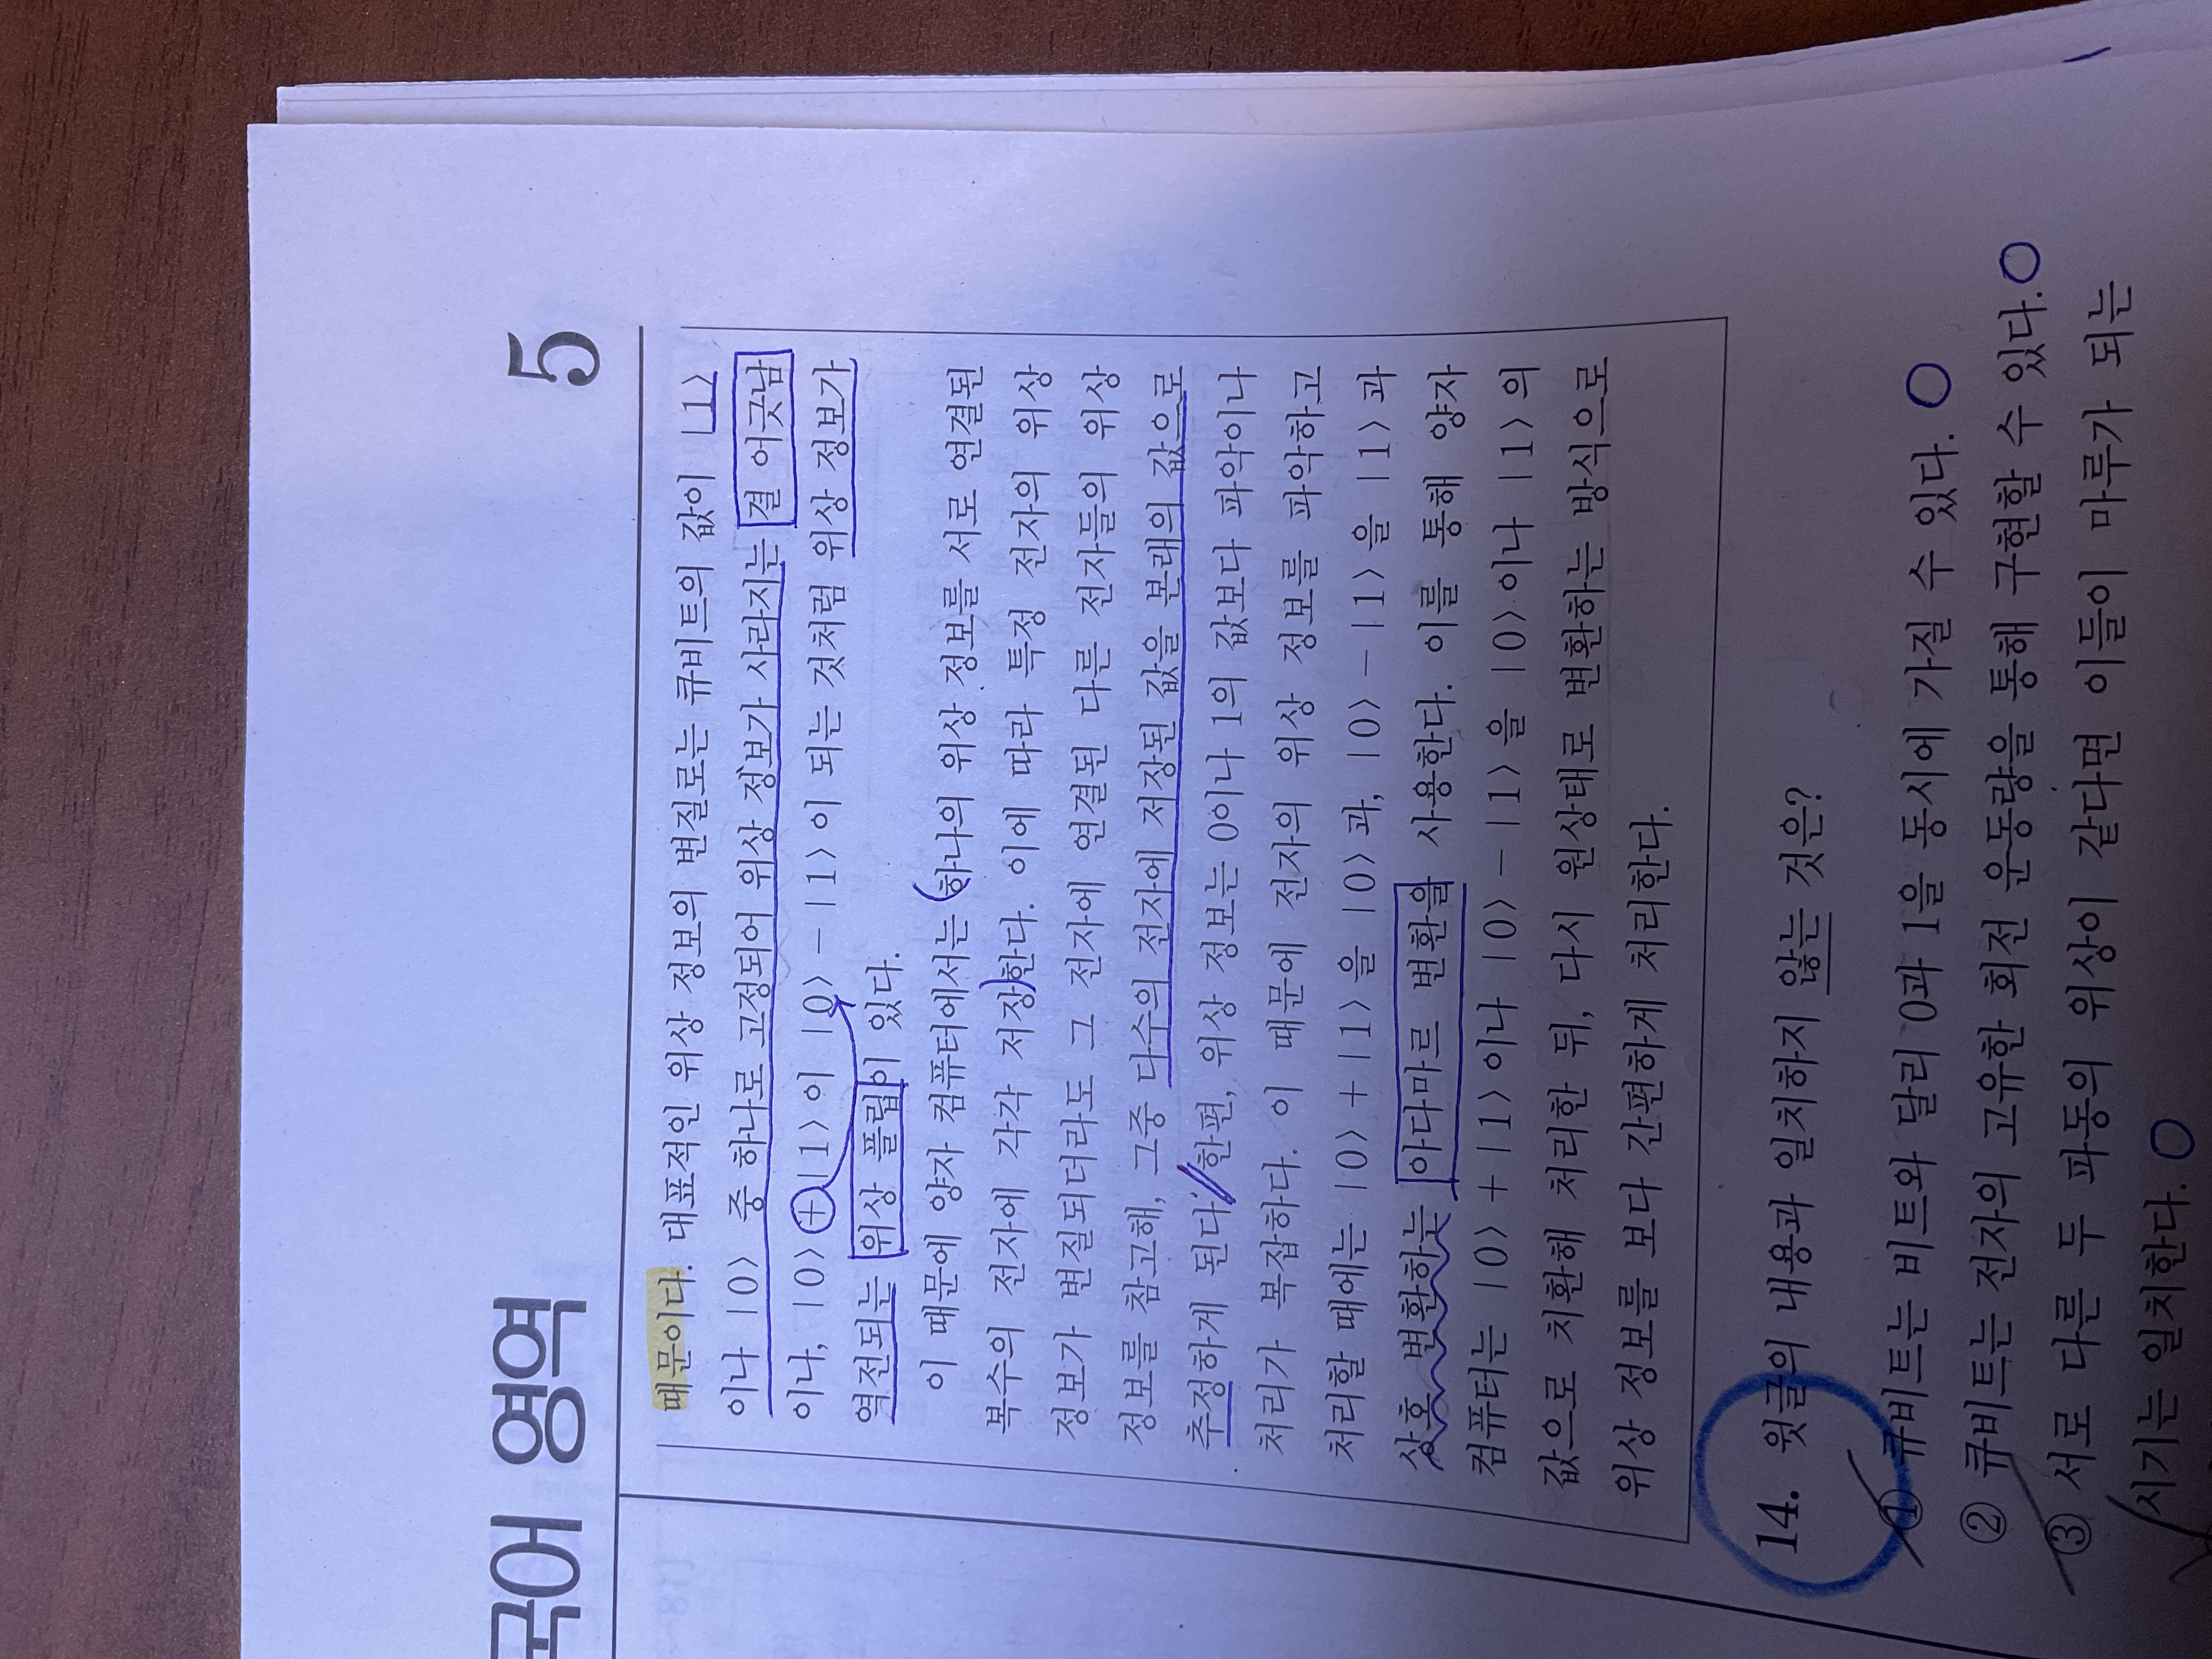 국어 영역
5
때문이다. 대표적인 위상 정보의 변질로는 큐비트의 값이 |1>
이나 |0> 중 하나로 고정되어 위상 정보가 사라지는 결 어긋남
이나, |0>+|1>이 |0>-|1>이 되는 것처럼 위상 정보가
역전되는 위상 플립이 있다.
이 때문에 양자 컴퓨터에서는 하나의 위상 정보를 서로 연결된
복수의 전자에 각각 저장한다. 이에 따라 특정 전자의 위상
정보가 변질되더라도 그 전자에 연결된 다른 전자들의 위상
정보를 참고해, 그중 다수의 전자에 저장된 값을 본래의 값으로
추정하게 된다. 한편, 위상 정보는 0이나 1의 값보다 파악이나
처리가 복잡하다. 이 때문에 전자의 위상 정보를 파악하고
처리할 때에는 |0>+|1>을 |0>과, |0>-|1>을 |1>과
상호 변환하는 아다마르 변환을 사용한다. 이를 통해 양자
컴퓨터는 |0>+|1>이나 |0>-|1>을 |0>이나 |1>의
값으로 치환해 처리한 뒤, 다시 원상태로 변환하는 방식으로
위상 정보를 보다 간편하게 처리한다.
14. 윗글의 내용과 일치하지 않는 것은?
① 큐비트는 비트와 달리 0과 1을 동시에 가질 수 있다.
② 큐비트는 전자의 고유한 회전 운동량을 통해 구현할 수 있다.
③ 서로 다른 두 파동의 위상이 같다면 이들이 마루가 되는
시기는 일치한다.